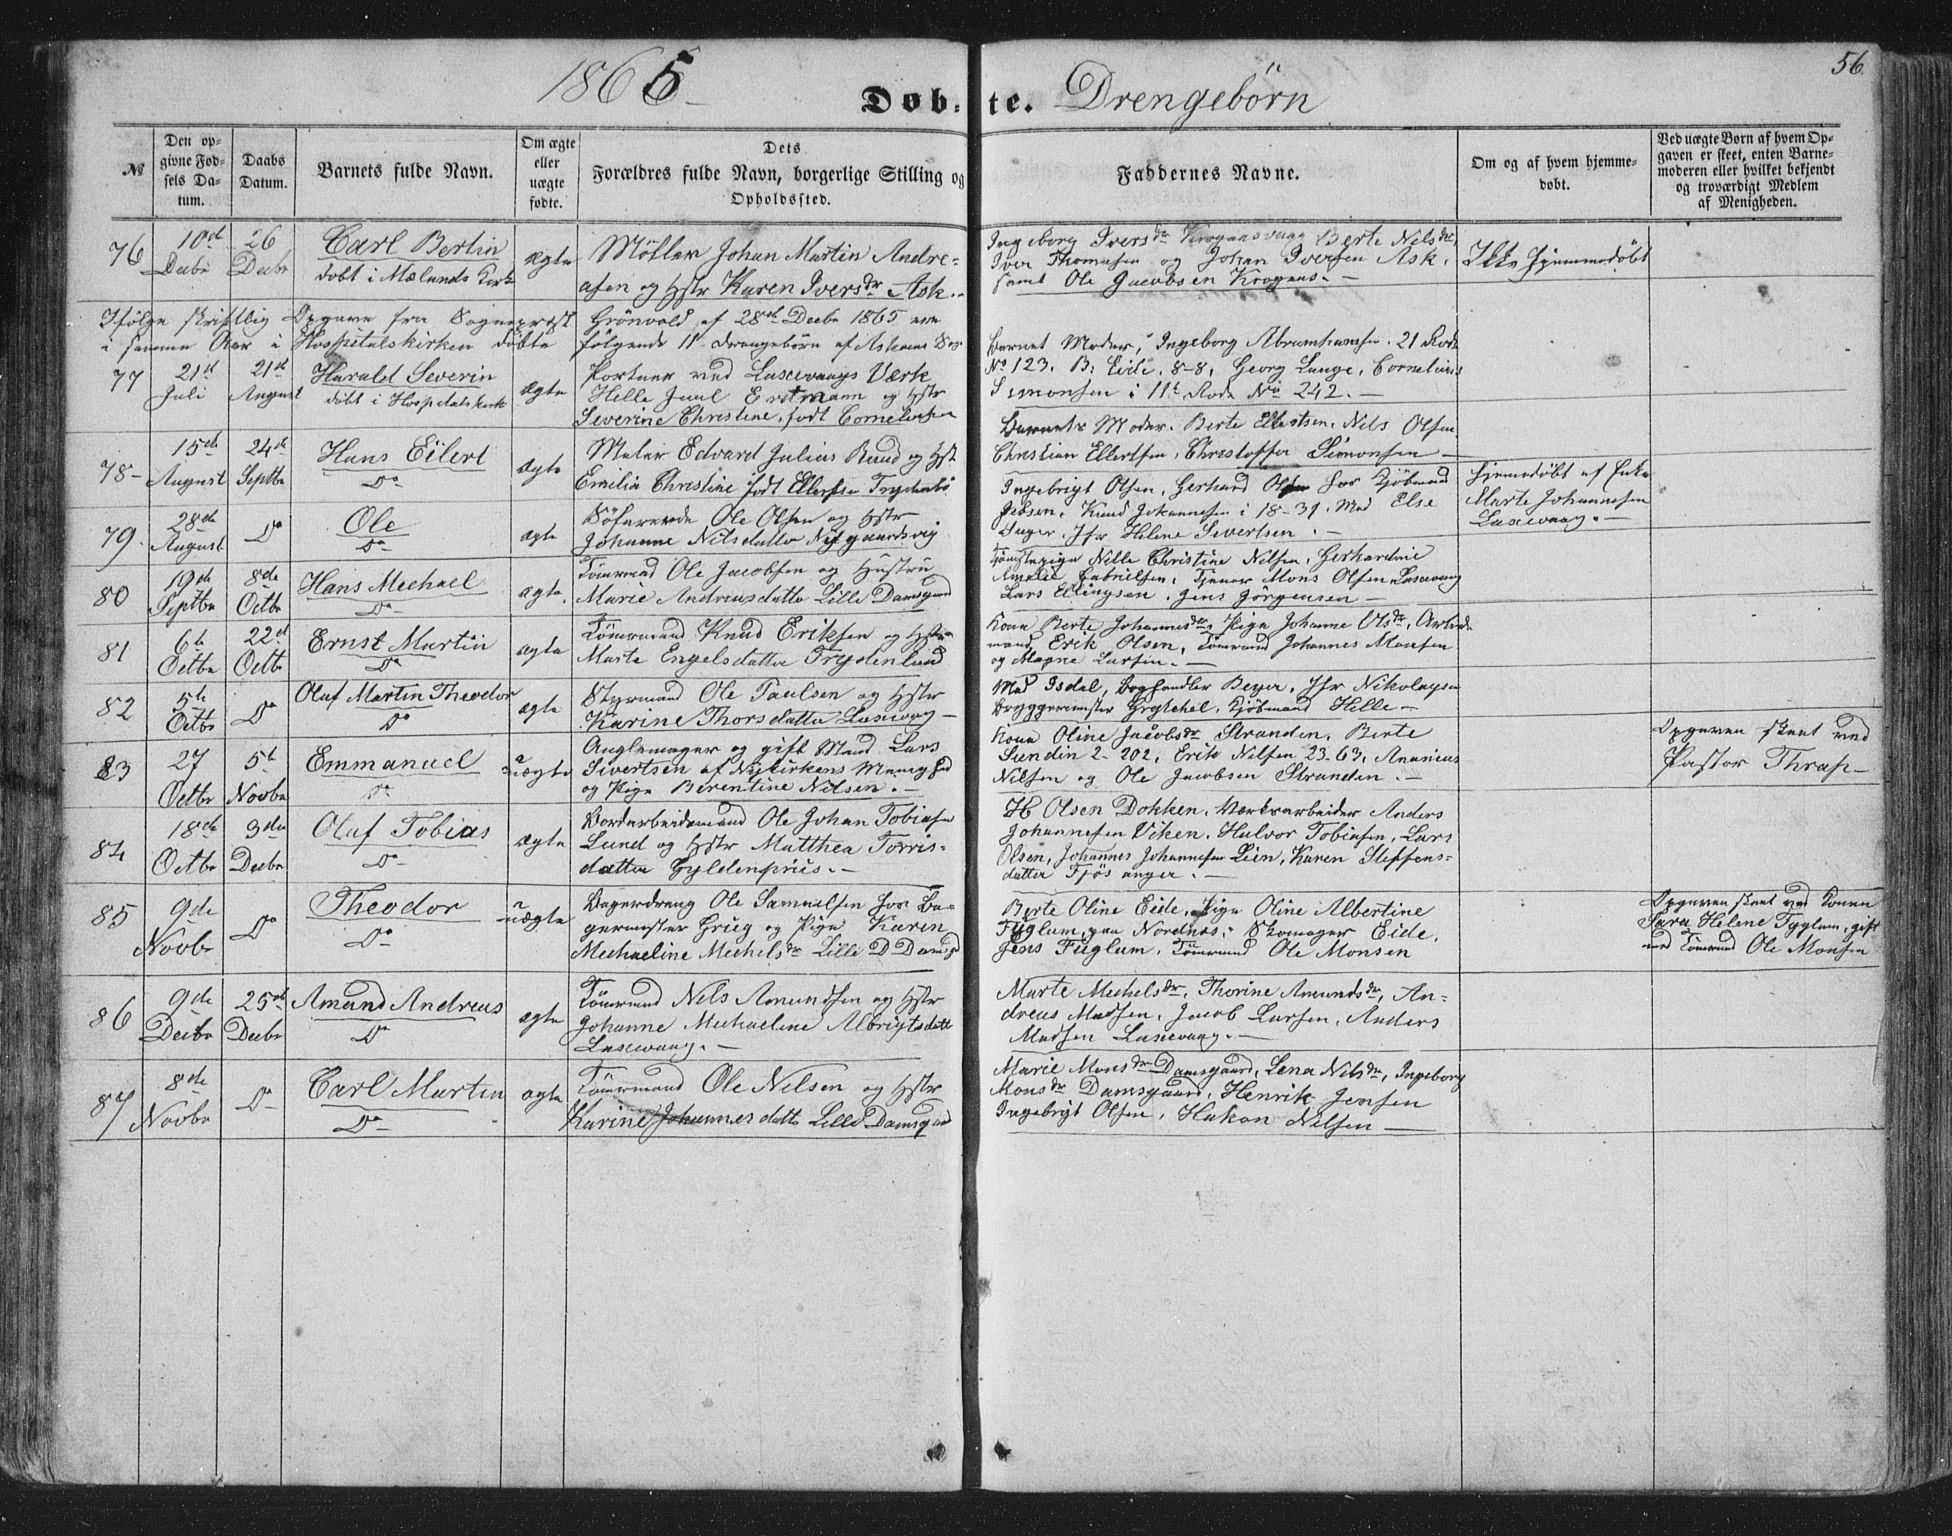 56
1865
Døb- te. Drengebörn
№
Den op-
givne Fød-
sels Da-
tum.
Daabs
Datum.
Barnets fulde Navn.
Om ægte
eller
uægte
fødte.
Dets
Forældres fulde Navn, borgerlige Stilling og
Opholdssted.
Faddernes Navne.
Om og af hvem hjemme-
døbt.
Ved uægte Børn af hvem Op-
gaven er skeet, enten Barne-
moderen eller hvilket bekjendt
og troværdigt Medlem
af Menigheden.
76
10de
Decbr
26
Decbr
Carl Bertin
døbt i Mælands Kirk
ægte
Möller Johan Martin Andre-
asen og Hstr Karen Iversdr Ask.
Ingeborg Iversdr Berte Nilsdr,
Iver Thomasen og Johan Iversen Ask,
samt Ole Jacobsen Krogens.
Ikke hjemmedöbt
Ifölge skriftlig Opgave fra Sognepræst Grönvold af 28de Decbr 1865 ere
i samme Aar i Hospitalskirken döbte følgende 11 drengebörn af Askøens
77
21de
Juli
21de
August
Harald Severin
döbt i Hospitalskirk
ægte
Portner ved Laxevaags Værk
Helle Juul Erstmann og Hstr
Severine Christine, født Corneliusen
Barnets Moder, Ingeborg Abrahamsen. 21 Rode
No 123. B. Eide. 8-8, Georg Lange, Cornelius
Simonsen i 11te Rode No 242.
78
15de
August
24de
Septbr
Hans Eilert
Do
ægte
Maler Edvard Julius Ruud og Hst
Emilie Christine født Ellertsen
Barnets Moder. Berte Ellertsen, Nels Olsen
Christian Ellertsen, Christoffer Simonsen
79
28de
August
Do
Ole
Do
ægte
Søfarende Ole Olsen og Hstr
Johanne Nilsdatter Nygaardsvig
Ingebrigt Olsen, Gerhard Olsen hos Kjöbmand
Jebsen, Knud Johannesen i 18-31. Mad Else
Unger, Jfr Helene Sivertsen.
Hjemmedøbt af Enke
Marte Johannesen
Laxevaag.
80
19de
Septbr
8de
Octbr
Hans Mechael
Do
ægte
Tömrmd Ole Jacobsen og Hustru
Marie Andreasdatter Lille Damsgaard
Tjenestepige Nille Christine Nilsen, Gerhardine
Amalie Gabrielsen, Tjener Mons Olsen Laxevaag
Lars Ellingsen, Jens Jörgensen
81
6te
Octbr
22de
Octbr
Ernst Martin
Do
ægte
Tömrmand Knud Eriksen og Hstr
Marte Engelsdatter Frydenlund
Kone Berte Johannesdr, Pige Johanne Olsdr, Arbeids-
mand Erik Olsen, Tömrmd Johannes Monsen
og Magne Larsen.
82
5te
Octbr
Do
Oluf Martin Theodor
Do
ægte
Styrmand Ole Paulsen og Hstr
Karine Thorsdatter Laxevaag
Mad Isdal, Boghandler Beyer, Jfr Nikolaysen
Bryggermester Grytchel, Kjöbmand Helle
83
27
Octbr
5te
Novbr
Emmanuel
Do
uægte
Anglemager og gift Mand Lars
Sivertsen af Nykirkens Menighed
og Pige Berentine Nilsen.
Kone Oline Jacobsdr Stranden, Berte
Sundin 2-202, Erik Nilsen 23-63, Ananias
Nilsen og Ole Jacobsen Stranden.
Opgaven skeet ved
Pastor Thrap
84
18de
Octbr
3die
Decbr
Oluf Tobias
Do
ægte
Bordarbeidsmand Ole Johan Tobiasen
Lund og Hstr Matthea Torris-
datter Gyldenpriis.
H Olsen Dokken, Værksarbeider Anders
Johannesen Viken, Halvor Tobiasen, Lars
Olsen, Johannes Johannesen Lien, Karen Steffens-
datter Fjös anger.
85
9de
Novbr
Do
Theodor
Do
uægte
Bagerdreng Ole Samuelsen hos Ba-
germester Grieg og Pige Karen
Mechaeline Mechelsdr Lille D Damsg
Berte Oline Eide, Pige Oline Albertine
Füglum, paa Nordnæs, Skomager Eide,
Jens Füglum, Tömrmd Ole Monsen
Opgaven skeet ved Konen
Sara Helene Fyglum, gift
med Tömrmd Ole Monsen
86
9de
Decbr
25de
Decbr
Amund Andreas
Do
ægte
Tömrmd Nels Amundsen og Hstr
Johanne Mechaeline Albrigtsdatt
Laxevaag.
Marte Mechelsdr, Thorine Amundsdr, An-
dreas Madsen, Jacob Larsen, Anders
Madsen Laxevaag.
87
8de
Novbr
Do
Carl Martin
Do
ægte
Tömrmand Ole Nelsen og Hstr
Karine Johannesdatter Lille Damsgaard
Marie Monsdr Damsgaard, Lena Nilsdr, Ingeborg
Monsdr Damsgaard, Henrik Jensen
Ingebrigt Olsen, Hakon Nelsen